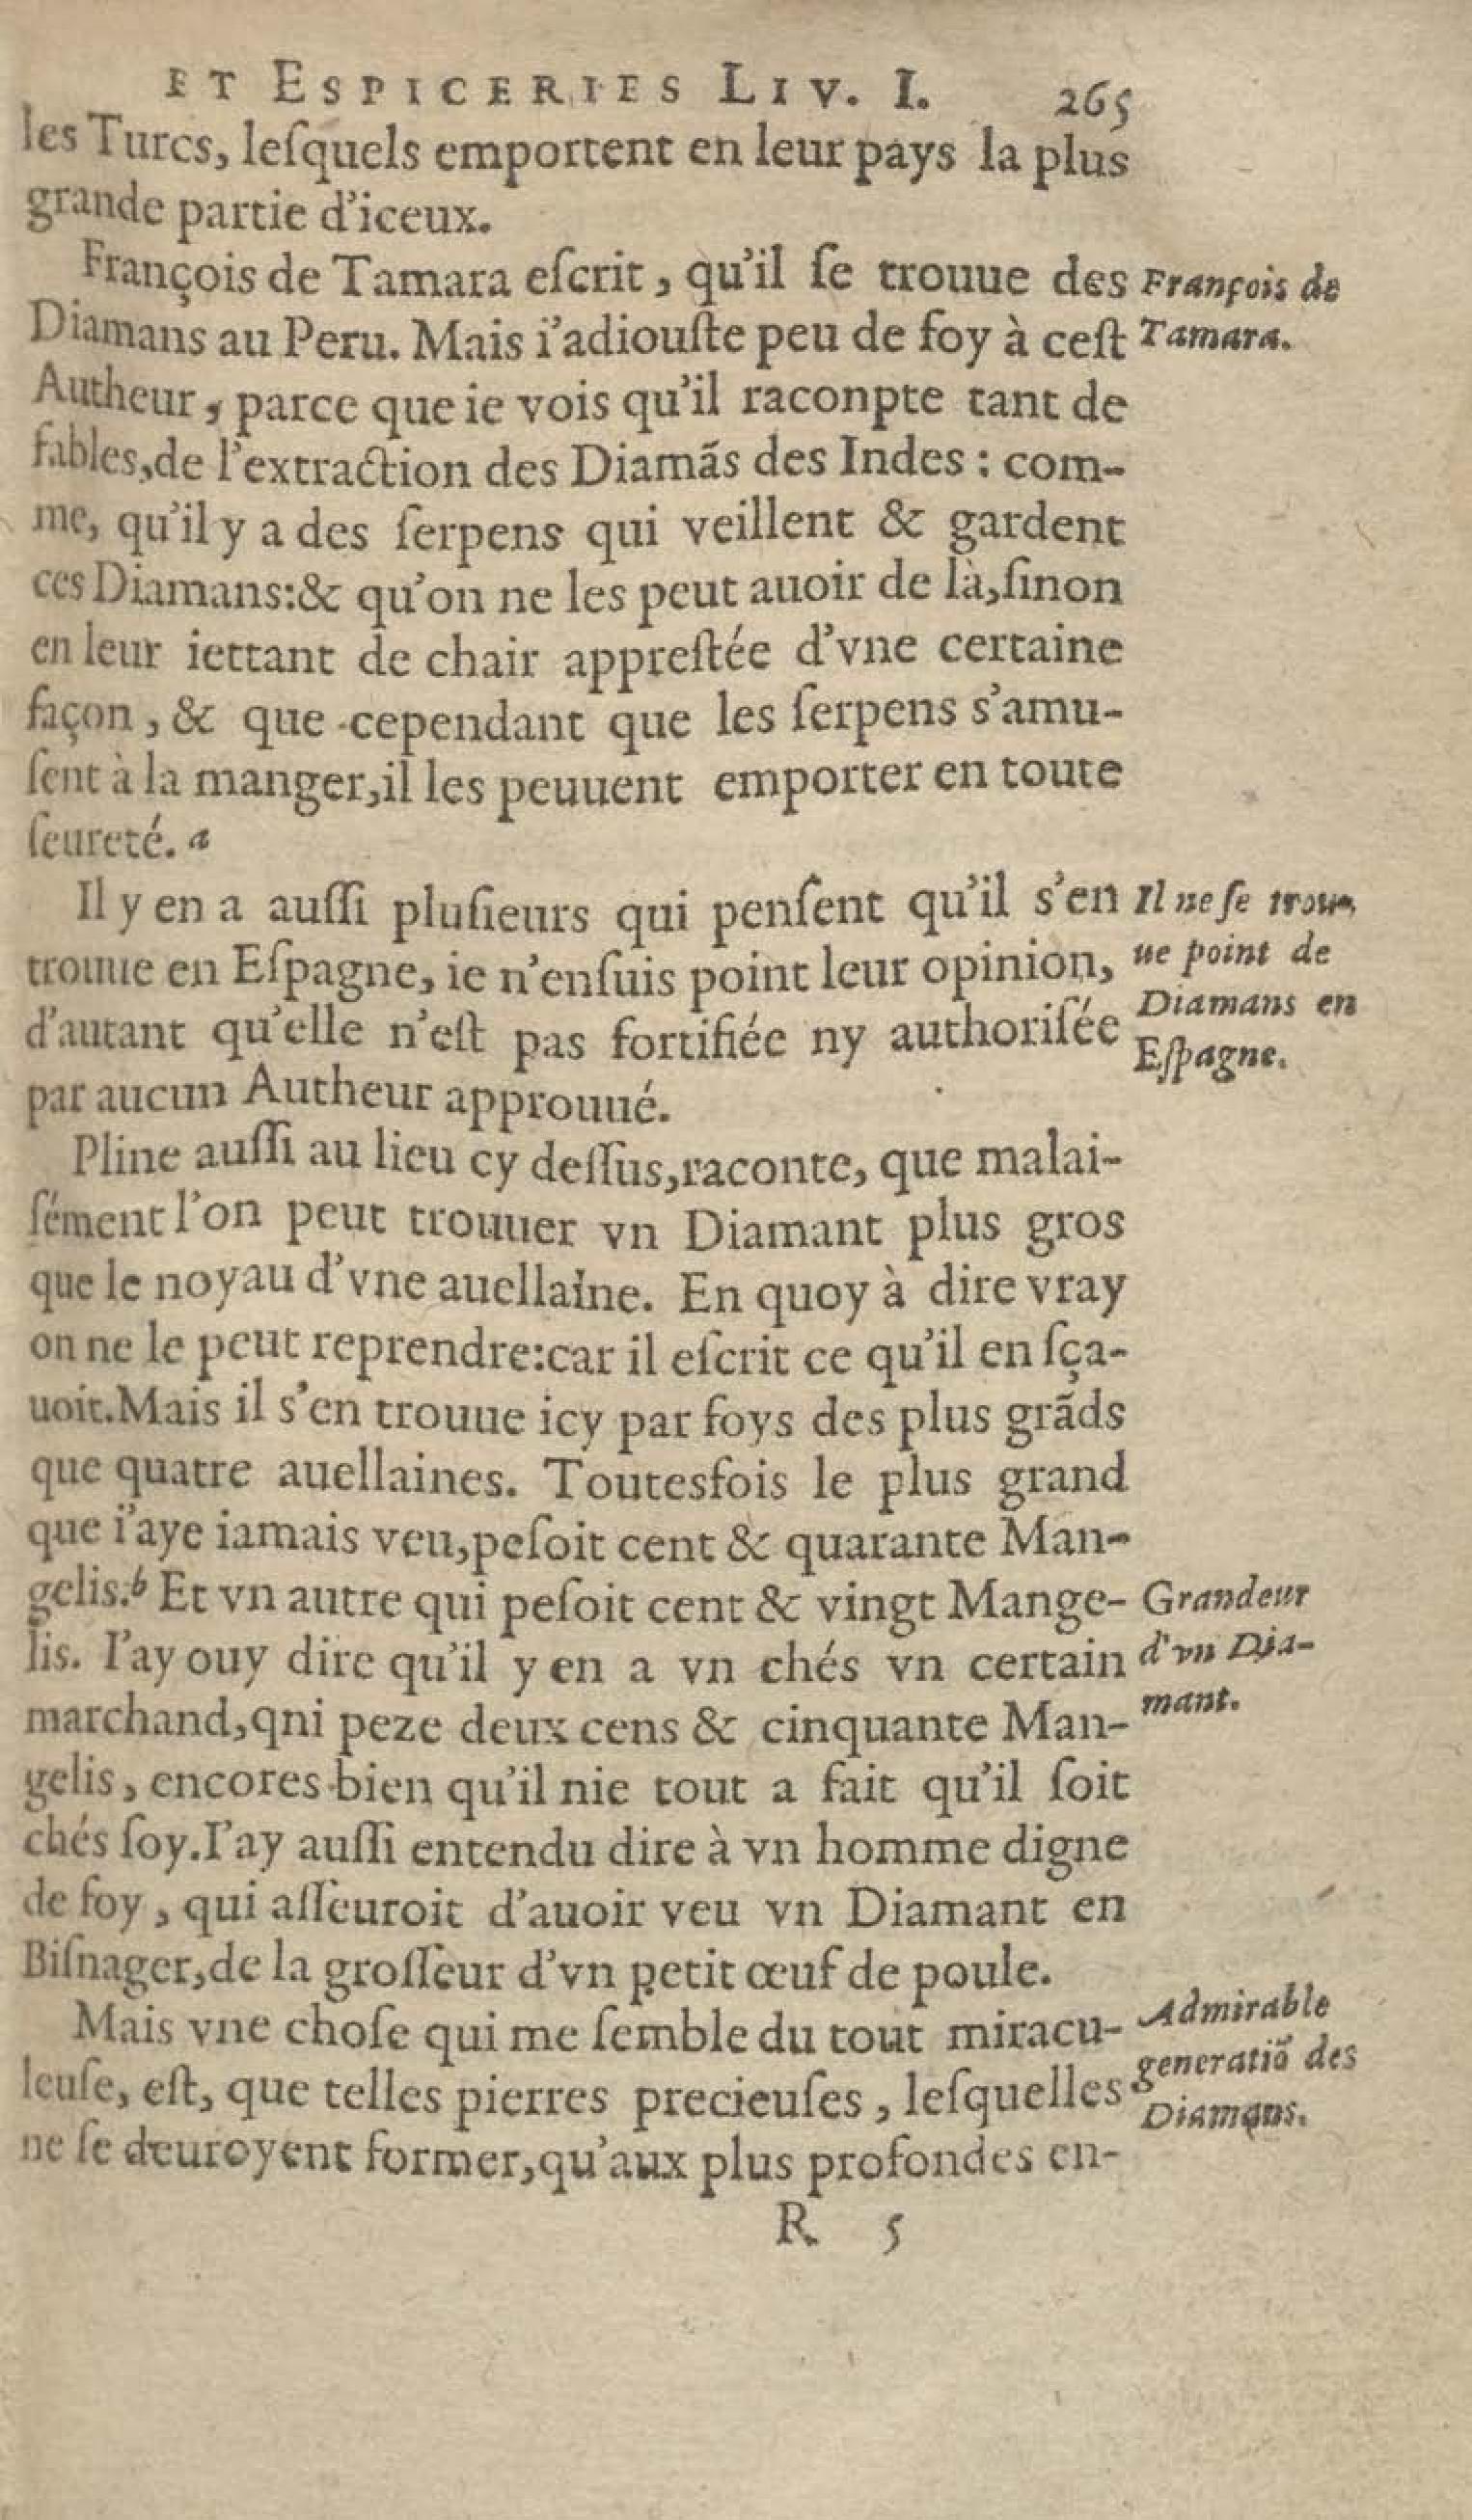 ET ESPICERIES LIV. I. 265
les Turcs, leſquels emportent en leur pays la plus
grande partie d'iceux.
François de Tamara eſcrit, qu'il ſe trouue des
François de
Diamans au Peru. Mais i'adiouſte peu de foy à ceſt
Tamara.
Autheur, parce que ie vois qu'il raconpte tant de
fables,de l'extraction des Diamãs des Indes : com-
me, qu'il y a des ſerpens qui veillent & gardent
ces Diamans:& qu'on ne les peut auoir de là,ſinon
en leur iettant de chair appreſtée d'vne certaine
façon, & que cependant que les ſerpens s'amu-
ſent à la manger,il les peuuent emporter en toute
ſeureté. a
Il y en a auſſi pluſieurs qui penſent qu'il s'en
Il ne ſe trou-
trouue en Eſpagne, ie n'enſuis point leur opinion,
ue point de
d'autant qu'elle n'eſt pas fortifiée ny authoriſée
Diamans en
Eſpagne.
par aucun Autheur approuué.
Pline auſſi au lieu cy deſſus,raconte, que malai-
ſément l'on peut trouuer vn Diamant plus gros
que le noyau d'vne auellaine. En quoy à dire vray
on ne le peut reprendre:car il eſcrit ce qu'il en ſça-
uoit.Mais il s'en trouue icy par foys des plus grãds
que quatre auellaines. Toutesfois le plus grand
que i'aye iamais veu,peſoit cent & quarante Man-
gelis:b Et vn autre qui peſoit cent & vingt Mange-
Grandeur
lis. I'ay ouy dire qu'il y en a vn chés vn certain
d'vn Dia-
marchand,qni peze deux cens & cinquante Man-
mant.
gelis, encores bien qu'il nie tout a fait qu'il ſoit
chés ſoy.I'ay auſſi entendu dire à vn homme digne
de foy, qui aſſeuroit d'auoir veu vn Diamant en
Biſnager,de la groſſeur d'vn petit œuf de poule.
Mais vne choſe qui me ſemble du tout miracu-
Admirable
leuſe, eſt, que telles pierres precieuſes, leſquelles
generatiõ des
Diamans.
ne ſe deuroyent former,qu'aux plus profondes en-
R 5